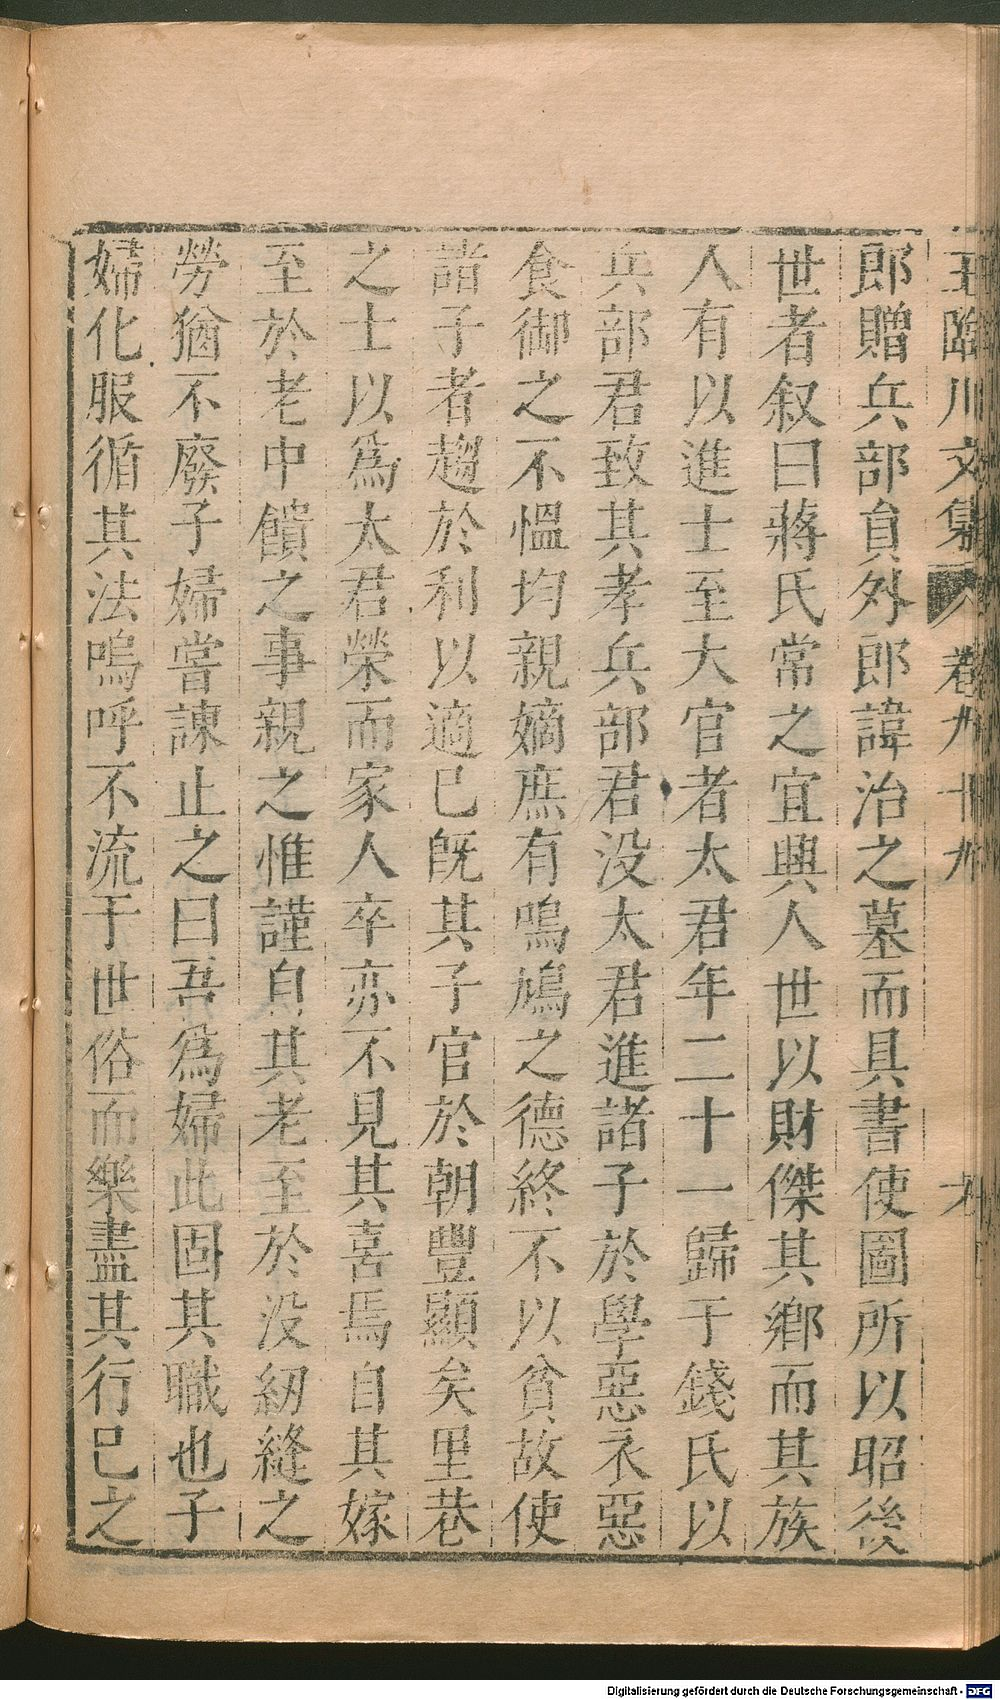 王臨川文集 卷九十九
郎贈兵部員外郎諱治之墓而具書使圖所以昭後
世者叙曰蔣氏常之宜興人世以財傑其鄉而其族
人有以進士至大官者太君年二十一歸于錢氏以
兵部君致其孝兵部君没太君進諸子於學惡衣惡
食御之不慍均親嫡庶有鳴鳩之德終不以貧故使
諸子者趨於利以適已旣其子官於朝豐顯矣里巷
之士以爲太君榮而家人卒亦不見其喜焉自其嫁
至於老中饋之事親之惟謹自其老至於没紉縫之
勞猶不廢子婦嘗諫止之曰吾爲婦此固其職也子
婦化服循其法嗚呼不流于世俗而樂盡其行巳之
Digitalisierung gefördert durch die Deutsche Forschungsgemeinschaft - DFG